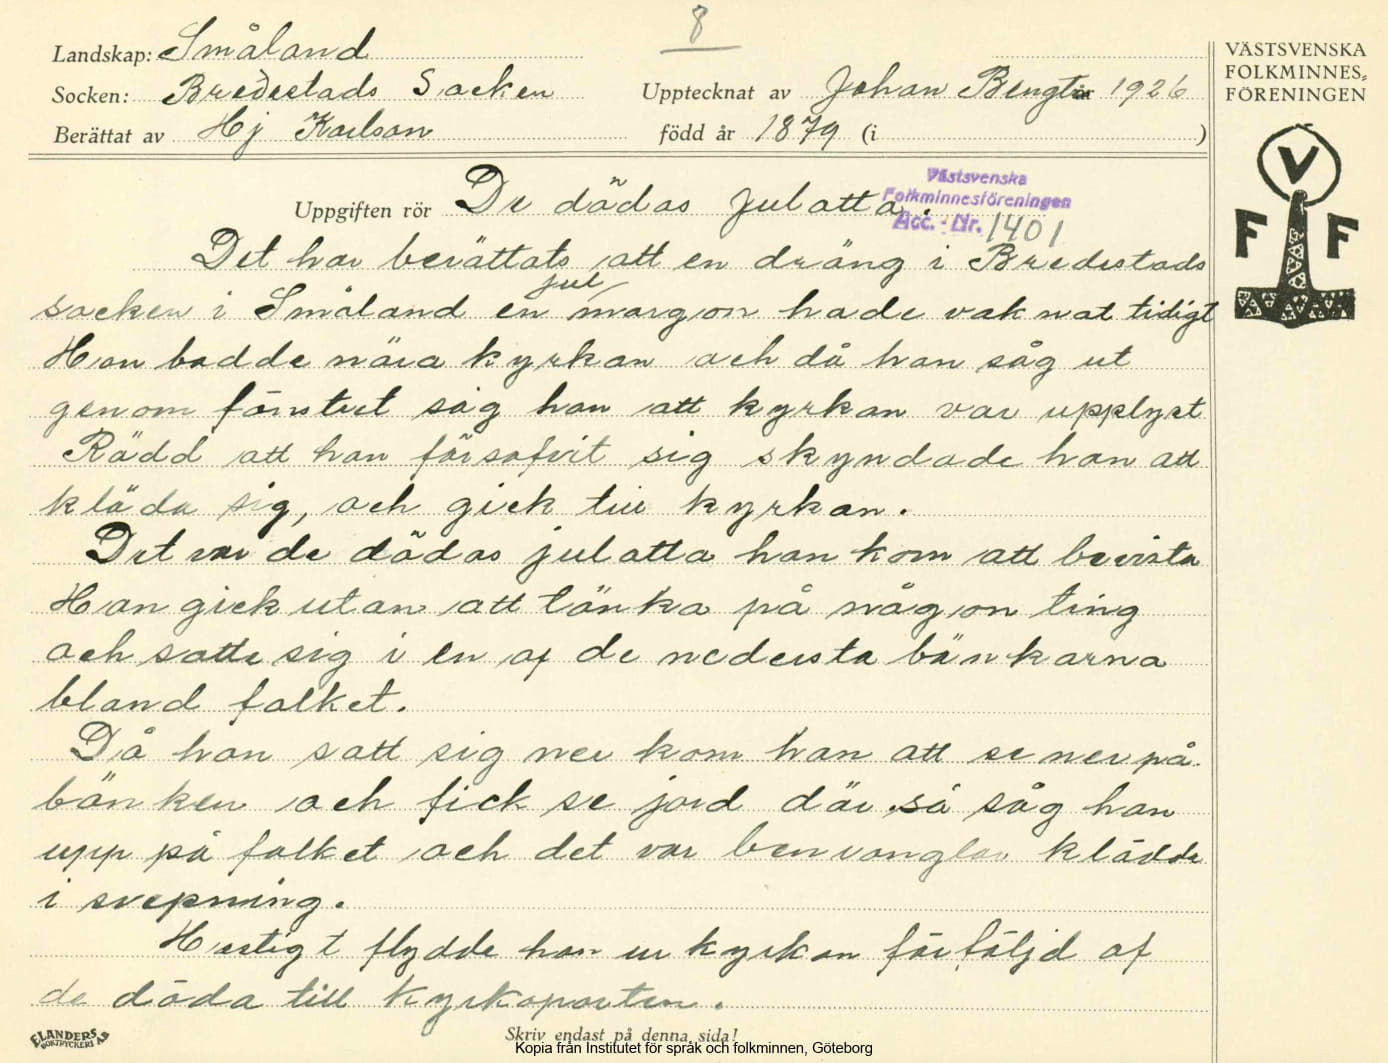 8
Landskap: Småland
Socken: Bredestads Socken
Upptecknat av Johan Bengts 1926
Berättat av Hj Karlson
född år 1879 (i )
VÄSTSVENSKA
FOLKMINNES=
FÖRENINGEN
V
F F
Uppgiften rör De dödas Julatta.
Västsvenska
Folkminnesföreningen
Acc. - Nr. 1401
Det har berättats att en dräng i Bredestads
jul
socken i Småland en morgon hade vaknat tidigt
Han bodde nära kyrkan och då han såg ut
genom fönstret såg han att kyrkan var upplyst
Rädd att han försofvit sig skyndade han att
kläda sig, och gick till kyrkan.
Det var de dödas julatta han kom att bevista
Han gick utan att tänka på någon ting
och satte sig i en af de nedersta bänkarna
bland folket.
Då han satt sig ner kom han att se ner på
bänken och fick se jord där så såg han
upp på folket och det var benranglar klädda
i svepning.
Hastigt flydde han ur kyrkan förföljd af
de döda till kyrkoporten.
Skriv endast på denna sida!
ELANDERS
BOKTRYCKERI AB
Kopia från Institutet för språk och folkminnen, Göteborg